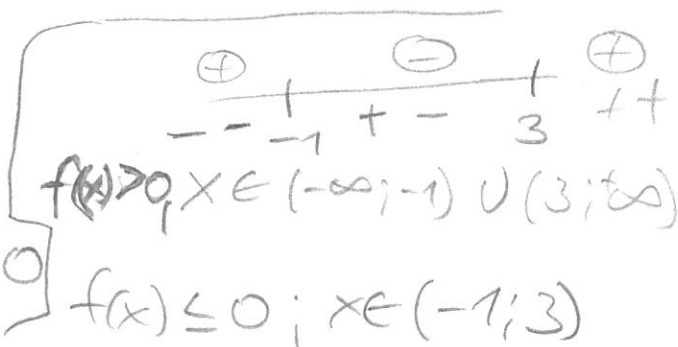 ⊕ ⊖ ⊕
- - -1 + - 3 + +
f(x)>0, x ∈ (-∞; -1) ∪ (3; +∞)
0
f(x) ≤ 0 ; x ∈ (-1; 3)